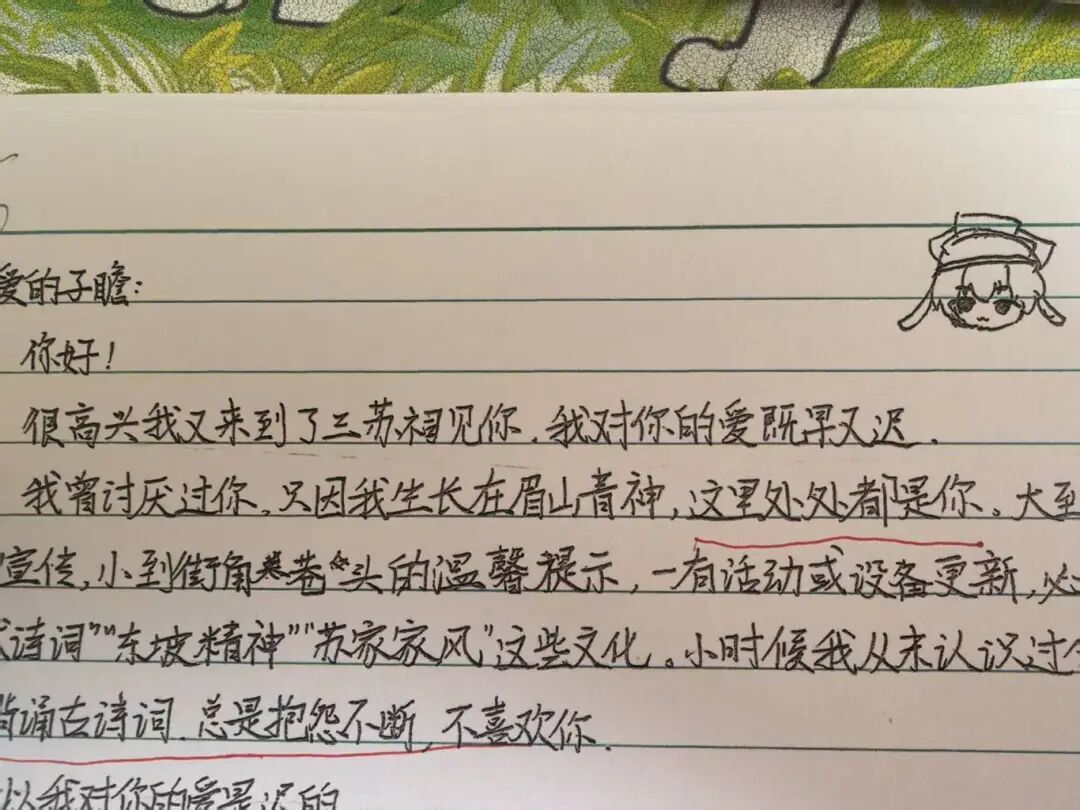 爱的子瞻：
你好！
很高兴我又来到了三苏祠见你，我对你的爱既早又迟．
我曾讨厌过你，只因我生长在眉山青神，这里处处都是你。大至
宣传，小到街角巷头的温馨提示，一有活动或设备更新，必
诗词”“东坡精神”“苏家家风”这些文化。小时候我从未认识过
背诵古诗词，总是抱怨不断，不喜欢你．
以我对你的爱是迟的